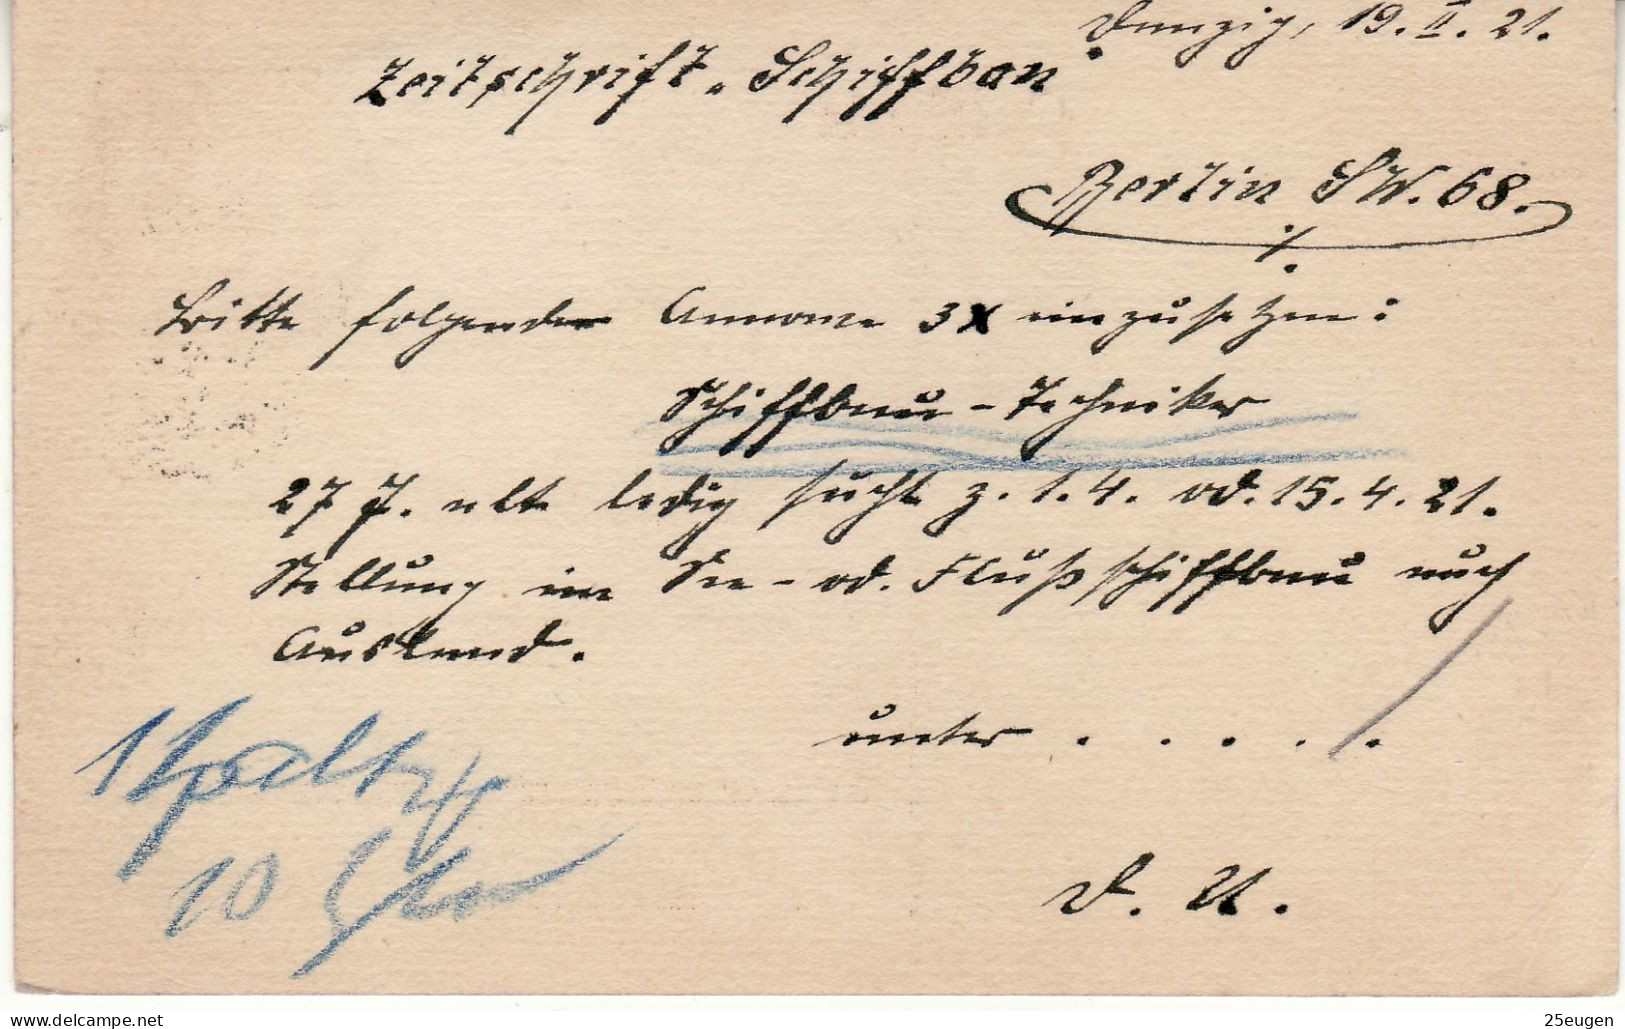 Danzig, 19. II. 21.
Zeitschrift „Schiffbau"
Berlin SW. 68.
./.
Bitte folgende Annonce 3x einzusetzen:
Schiffbau-Techniker
27 J. alt ledig sucht z. 1.4. od. 15.4.21.
Stellung im See- od. Flußschiffbau auch
Ausland.
unter . . . . .
D. U.
1 spaltig
10
delcampe.net
25eugen